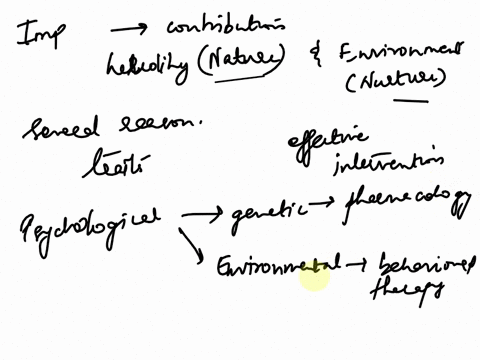 Imp → contributions
heredity (Nature) & Environment
(Nurture)
Several reason.
traits effective
interventions
Psychological → genetic → pharmacology
Environmental → behavioural
therapy